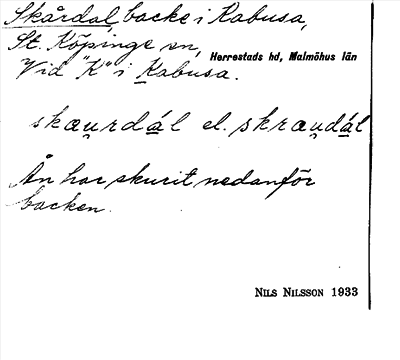 Skårdal, backe i Kabusa,
St. Köpinge sn, Herrestads hd, Malmöhus län
Vid "K" i Kabusa.
skæu̯rdál el. skræu̯dál
Ån har skurit nedanför
backen.
NILS NILSSON 1933